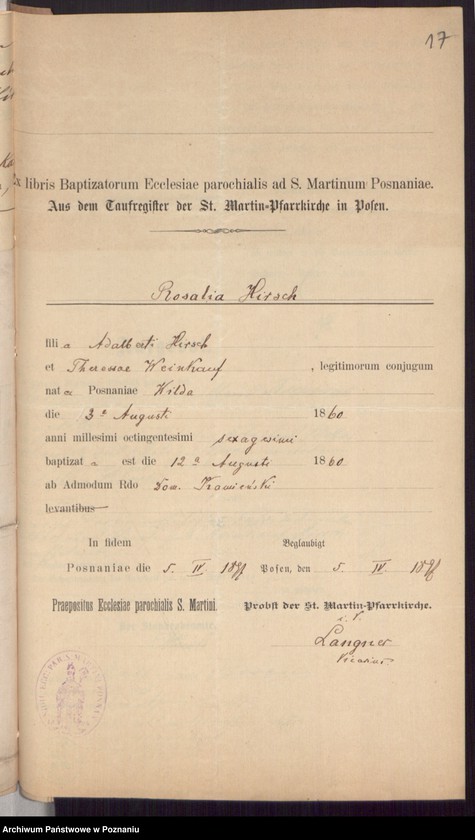 17
Ex libris Baptizatorum Ecclesiae parochialis ad S. Martinum Posnaniae.
Aus dem Taufregister der St. Martin-Pfarrkirche in Posen.
Rosalia Hirsch
fili a Adalberti Hirsch
et Theresae Weinkauf , legitimorum conjugum
nat a Posnaniae Wilda
die 3a Augusti 1860
anni millesimi octingentesimi sexagesimi
baptizat a est die 12a Augusti 1860
ab Admodum Rdo Dom.
levantibus
In fidem Beglaubigt
Posnaniae die 5. IV. Posen, den 5. IV.
Praepositus Ecclesiae parochialis S. Martini. Probst der St. Martin-Pfarrkirche.
i. V.
Langner
Vicarius
Archiwum Państwowe w Poznaniu